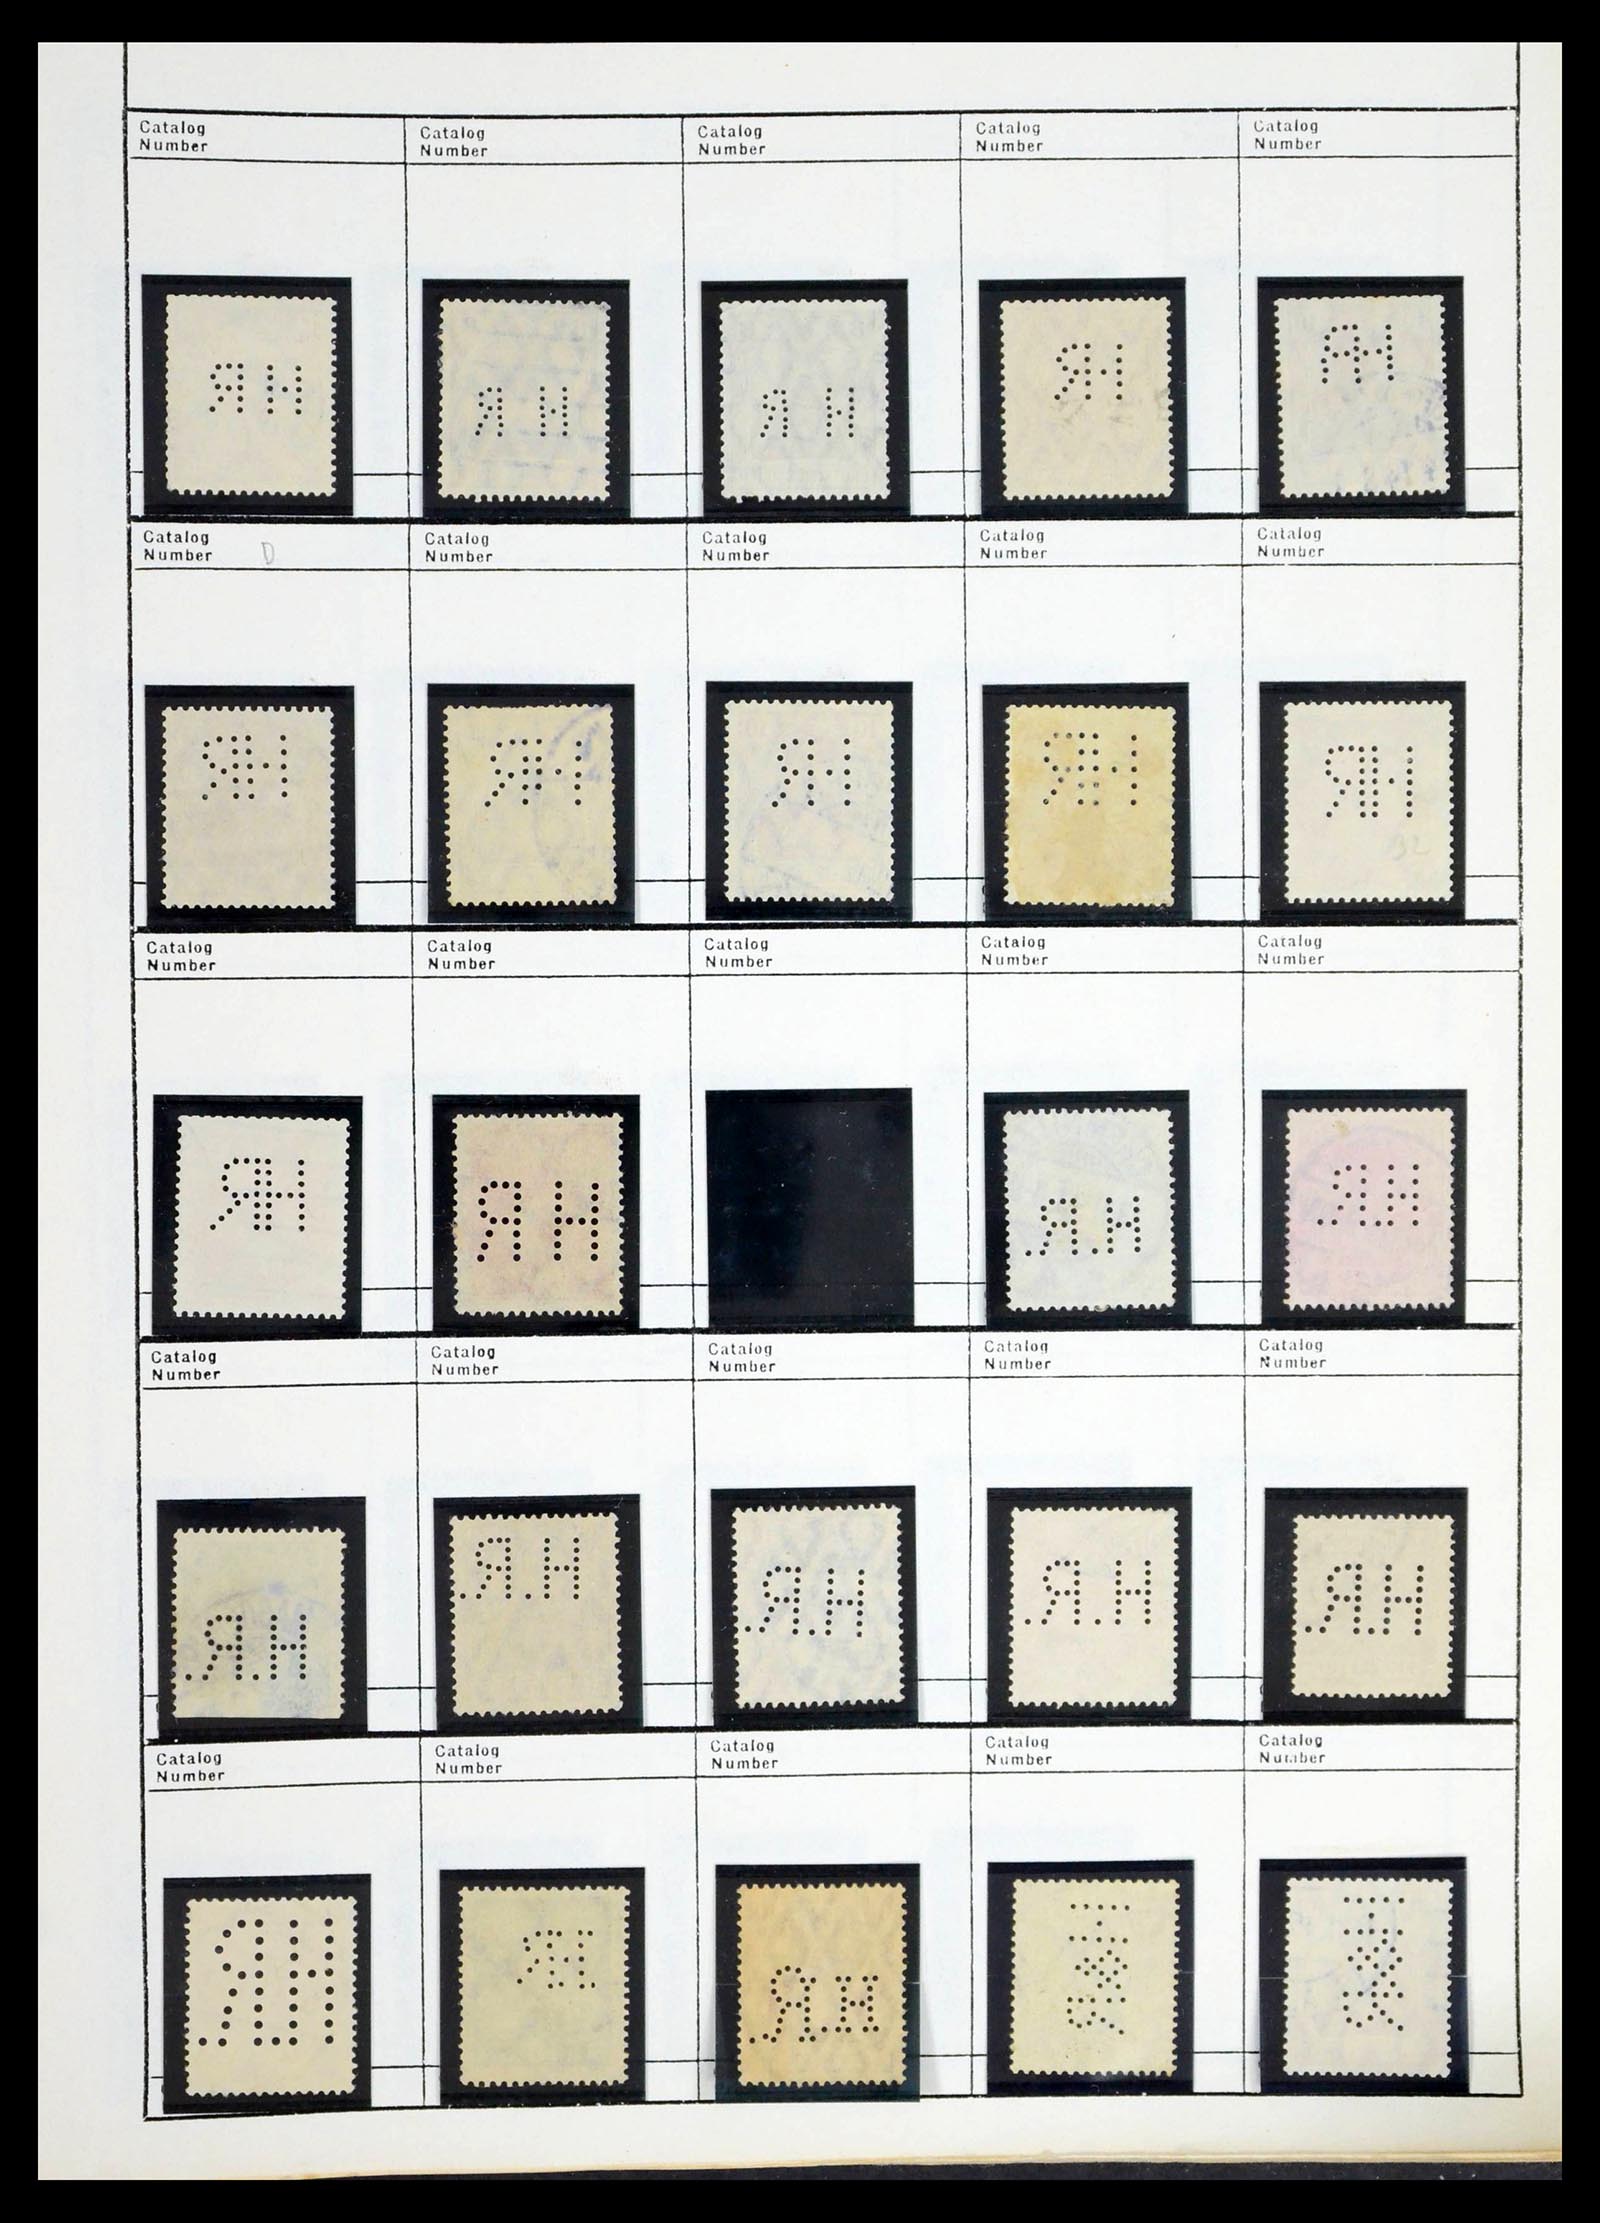 Catalog Number
Catalog Number
Catalog Number
Catalog Number
Catalog Number
ЯH
Я H
Я H
ЯH
ЯH
Catalog Number D
Catalog Number
Catalog Number
Catalog Number
Catalog Number
ЯH
ЯH
ЯH
ЯH
ЯH
32
Catalog Number
Catalog Number
Catalog Number
Catalog Number
Catalog Number
ЯH
Я H
.Я.H
.Я.H
Catalog Number
Catalog Number
Catalog Number
Catalog Number
Catalog Number
.Я.H
.Я.H
.Я.H
.Я.H
.Я.H
Catalog Number
Catalog Number
Catalog Number
Catalog Number
Catalog Number
.Я.H
ЯH
.Я.H